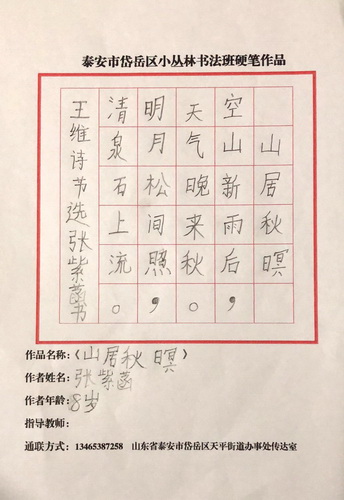 泰安市岱岳区小丛林书法班硬笔作品
山居秋暝
空山新雨后，
天气晚来秋。
明月松间照，
清泉石上流。
王维诗节选张紫菡书
作品名称：《山居秋暝》
作者姓名：张紫菡
作者年龄：8岁
指导教师：
通联方式：13465387258 山东省泰安市岱岳区天平街道办事处传达室